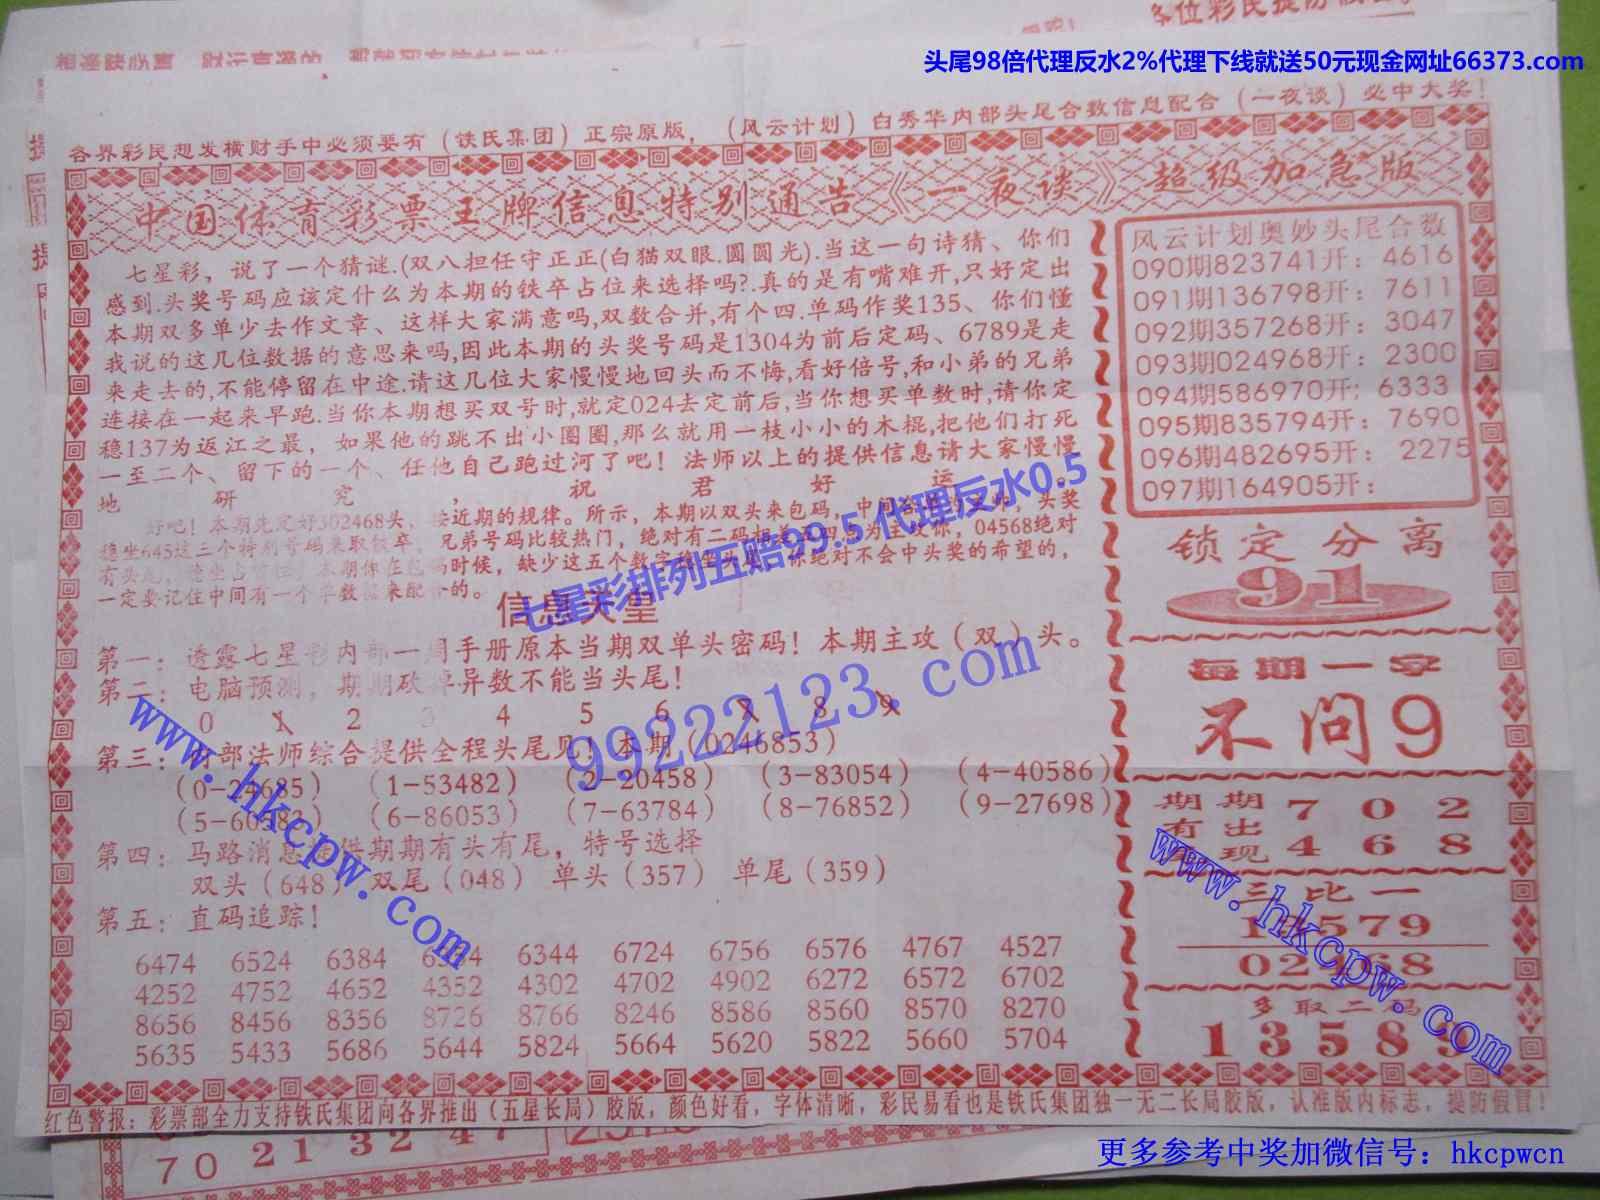 各位彩民提防假冒
头尾98倍代理反水2%代理下线就送50元现金网址66373.com
各界彩民想发横财手中必须要有（铁氏集团）正宗原版，（风云计划）白秀华内部头尾合数信息配合（一夜谈）必中大奖！
中国体育彩票王牌信息特别通告《一夜谈》超级加急版
七星彩，说了一个猜谜.(双八担任守正正(白猫双眼.圆圆光).当这一句诗猜、你们
感到.头奖号码应该定什么为本期的铁卒占位来选择吗?.真的是有嘴难开,只好定出
本期双多单少去作文章、这样大家满意吗,双数合并,有个四.单码作奖135、你们懂
我说的这几位数据的意思来吗,因此本期的头奖号码是1304为前后定码、6789是走
来走去的,不能停留在中途.请这几位大家慢慢地回头而不悔,看好倍号,和小弟的兄弟
连接在一起来早跑.当你本期想买双号时,就定024去定前后,当你想买单数时,请你定
稳137为返江之最，如果他的跳不出小圈圈,那么就用一枝小小的木棍,把他们打死
一至二个、留下的一个、任他自己跑过河了吧！法师以上的提供信息请大家慢慢
地研究，祝君好运
好吧！本期先定好302468头，按近期的规律。所示，本期以双头来包码，中间
头奖
645这三个特别号码来取铁卒，兄弟号码比较热门，绝对有二码相
为主攻你，04568绝对
时候，缺少这五个数字
你绝对不会中头奖的希望的，
一定要记住中间有一个单数
来配合的。
七星彩排列五赔99.5 代理反水0.5
第一：透露七星彩内部一周手册原本当期双单头密码！本期主攻（双）头。
第二：电脑预测，期期砍掉异数不能当头尾！
0 1 2 3 4 5 6 7 8 9
第三：内部法师综合提供全程头尾见！本期（0246853）
(0-24685) (1-53482) (2-20458) (3-83054) (4-40586)
(6-86053) (7-63784) (8-76852) (9-27698)
第四：马路消息提供期期有头有尾，特号选择
双头（648） 双尾（048） 单头（357） 单尾（359）
第五：直码追踪！
6474 6524 6384 6344 6724 6756 6576 4767 4527
4252 4752 4652 4352 4302 4702 4902 6272 6572 6702
8656 8456 8356 8726 8766 8246 8586 8560 8570 8270
5635 5433 5686 5644 5824 5664 5620 5822 5660 5704
风云计划奥妙头尾合数
090期823741开：4616
091期136798开：7611
092期357268开：3047
093期024968开：2300
094期586970开：6333
095期835794开：7690
096期482695开：2275
097期164905开：
锁定分离
91
每期一字
不问9
期期 7 0 2
有出
现 4 6 8
三比一
579
多取二码
13589
99222123.com
www.hkcpw.com
www.hkcpw.com
红色警报：彩票部全力支持铁氏集团向各界推出（五星长局）胶版，颜色好看，字体清晰，彩民易看也是铁氏集团独一无二长局胶版，认准版内标志，提防假冒！
70 21 32 47
更多参考中奖加微信号：hkcpwcn